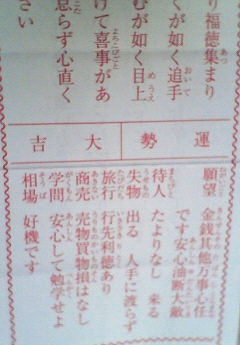 り福徳集まり
くが如く追手
むが如く目上
けて喜事があ
怠らず心直く
さい
運勢
大吉
願望 金銭其他万事心任
です安心油断大敵
待人 たよりなし 来る
失物 出る 人手に渡らず
旅行 行先利徳あり
商売 売物買物損はなし
学問 安心して勉学せよ
相場 好機です